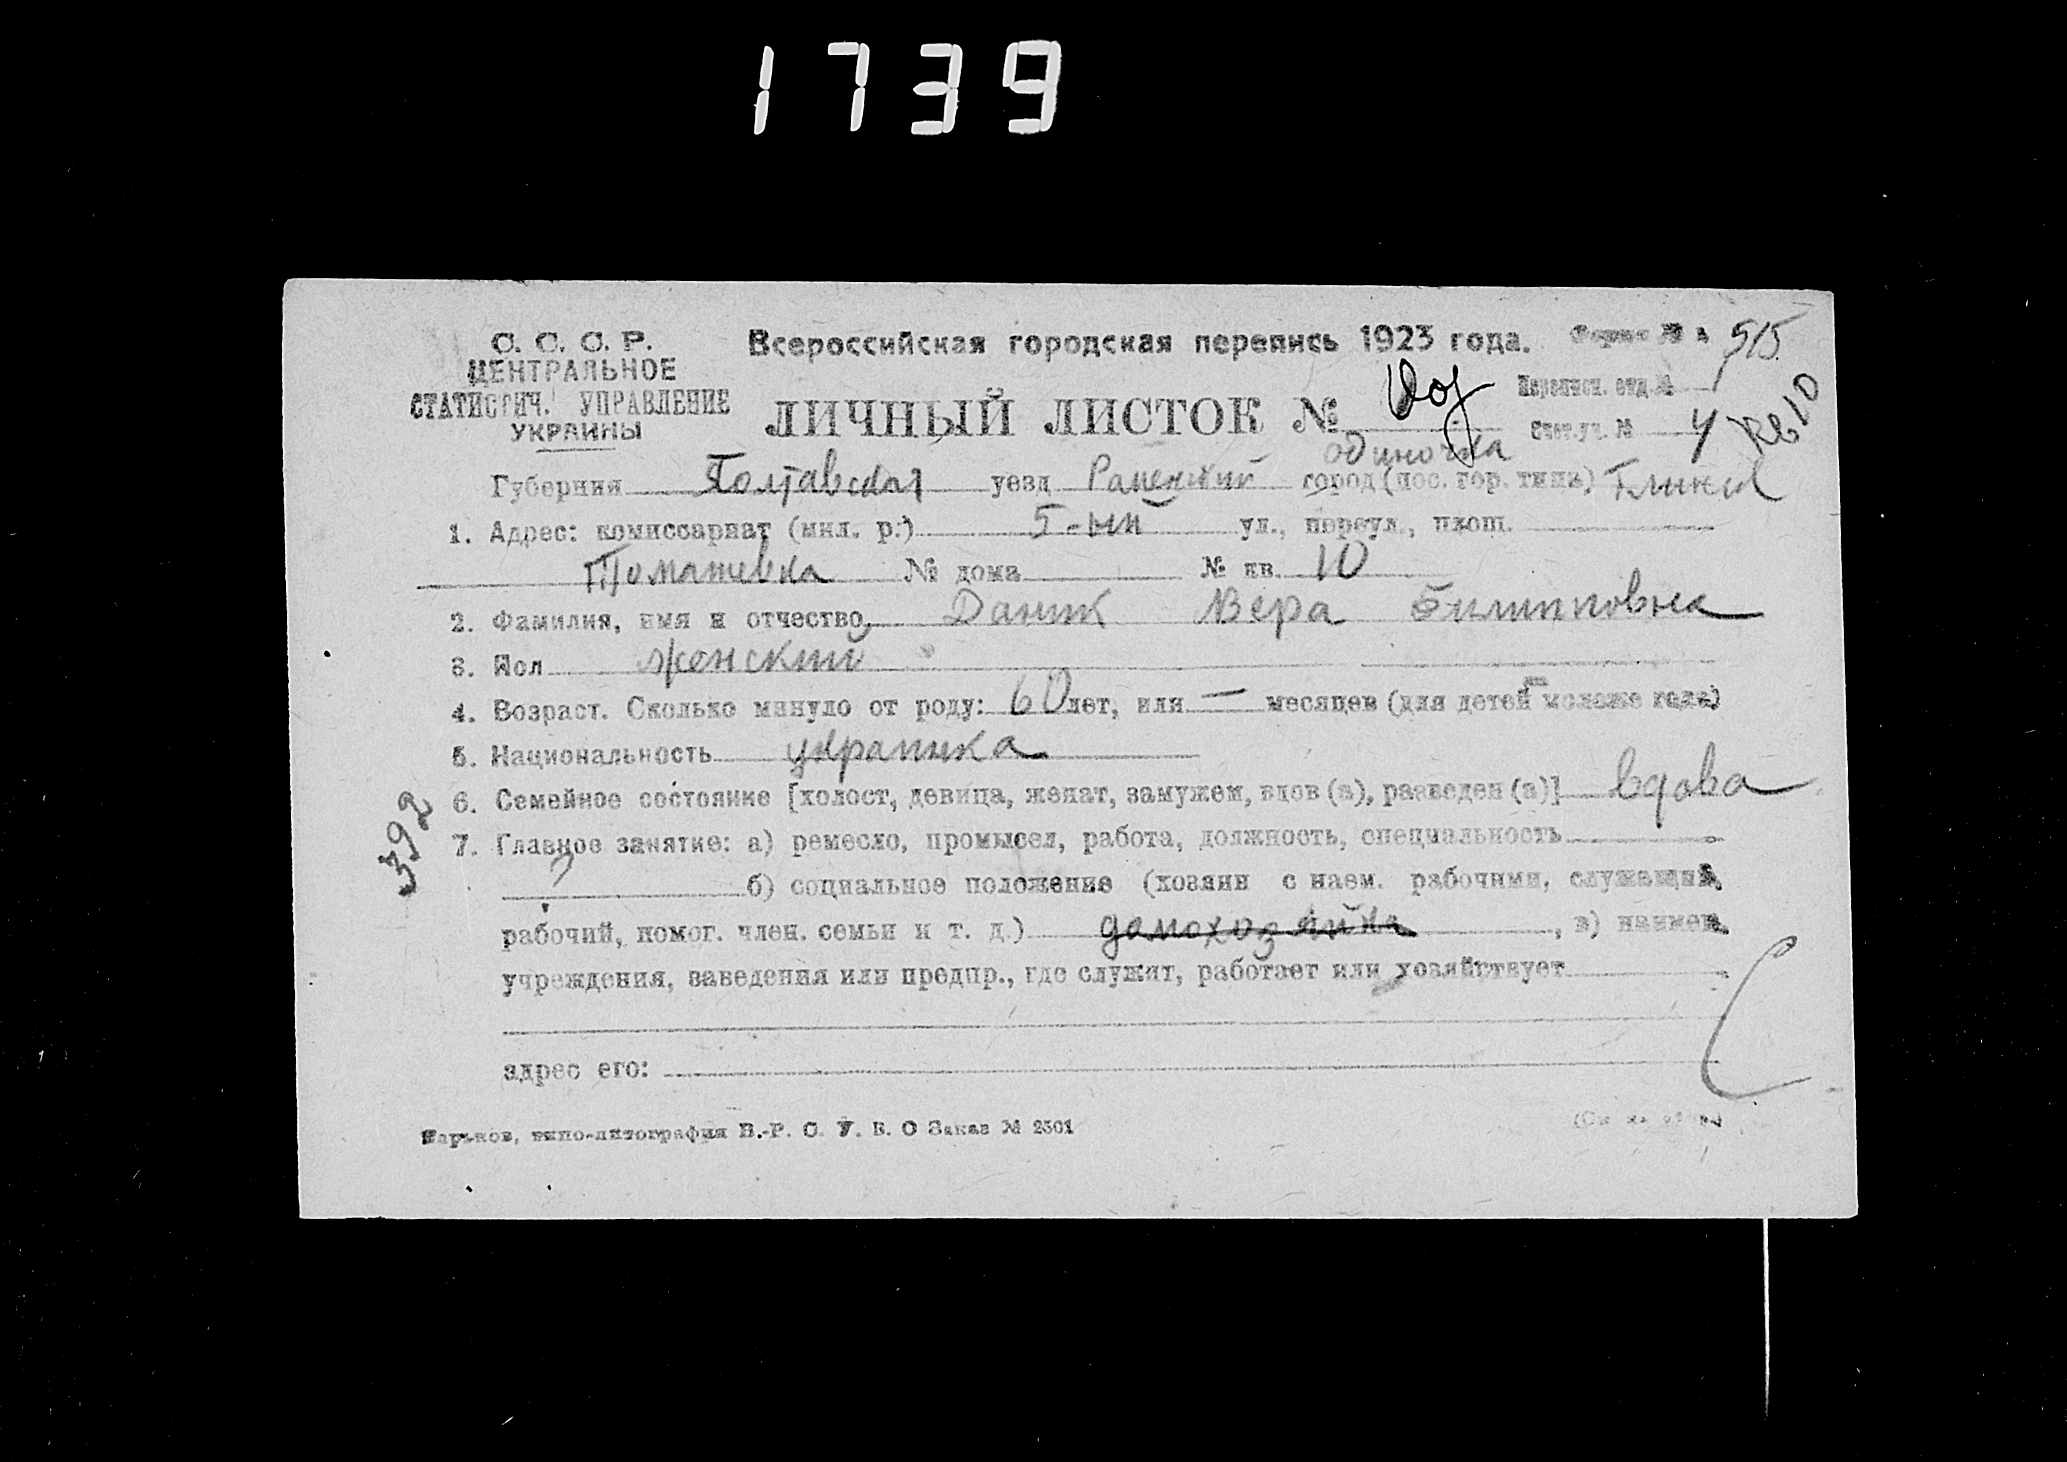 1739
С. С. С. Р.
ЦЕНТРАЛЬНОЕ
СТАТИСТИЧ. УПРАВЛЕНИЕ
УКРАИНЫ
Всероссийская городская перепись 1923 года.
Форма № 515
ЛИЧНЫЙ ЛИСТОК №
одиночка
Переписн. отд. №
Счет. уч. № 4
Губерния Полтавская уезд Роменский город (пос. гор. типа) Глинск
1. Адрес: комиссариат (мил. р.) 5-ый ул., переул., площ.
№ дома № кв. 10
2. Фамилия, имя и отчество Даник Вера Филипповна
3. Пол женский
4. Возраст. Сколько минуло от роду: 60 лет, или — месяцев (для детей моложе года)
5. Национальность украинка
6. Семейное состояние [холост, девица, женат, замужем, вдов (а), разведен (а)] вдова
7. Главное занятие: а) ремесло, промысел, работа, должность, специальность
б) социальное положение (хозяин с наем. рабочими, служащий,
рабочий, помог. член. семьи и т. д.) домохозяйка, в) наимен.
учреждения, заведения или предпр., где служит, работает или хозяйствует
адрес его:
Харьков, типо-литография В.-Р. С. У. В. О Заказ № 2301
392